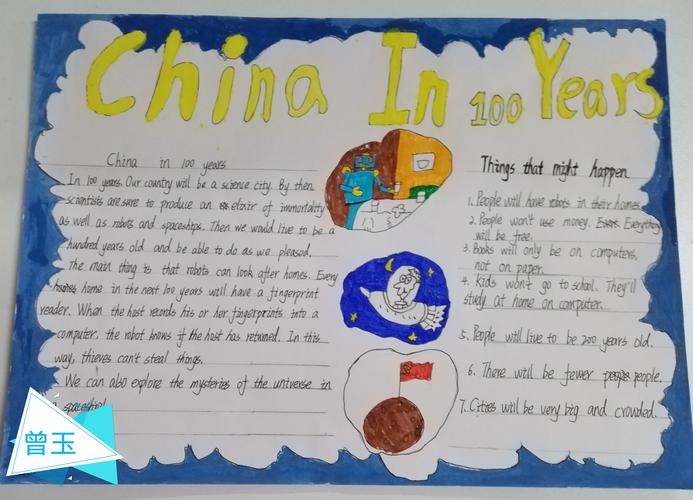 China In 100 Years
China in 100 years
In 100 years. Our country will be a science city. By then
scientists are sure to produce an elixir of immortality
as well as robots and spaceships. Then we would live to be a
hundred years old and be able to do as we pleased.
The main thing is that robots can look after homes. Every
home in the next 100 years will have a fingerprint
reader. When the host records his or her fingerprints into a
computer. the robot knows if the host has returned. In this
way, thieves can't steal things.
We can also explore the mysteries of the universe in
spaceship!
Things that might happen
1. People will have robots in their homes.
2. People won't use money. Everything
will be free.
3. Books will only be on computers,
not on paper.
4. Kids won't go to school. They'll
study at home on computer.
5. People will live to be 200 years old.
6. There will be fewer people.
7. Cities will be very big and crowded.
曾玉